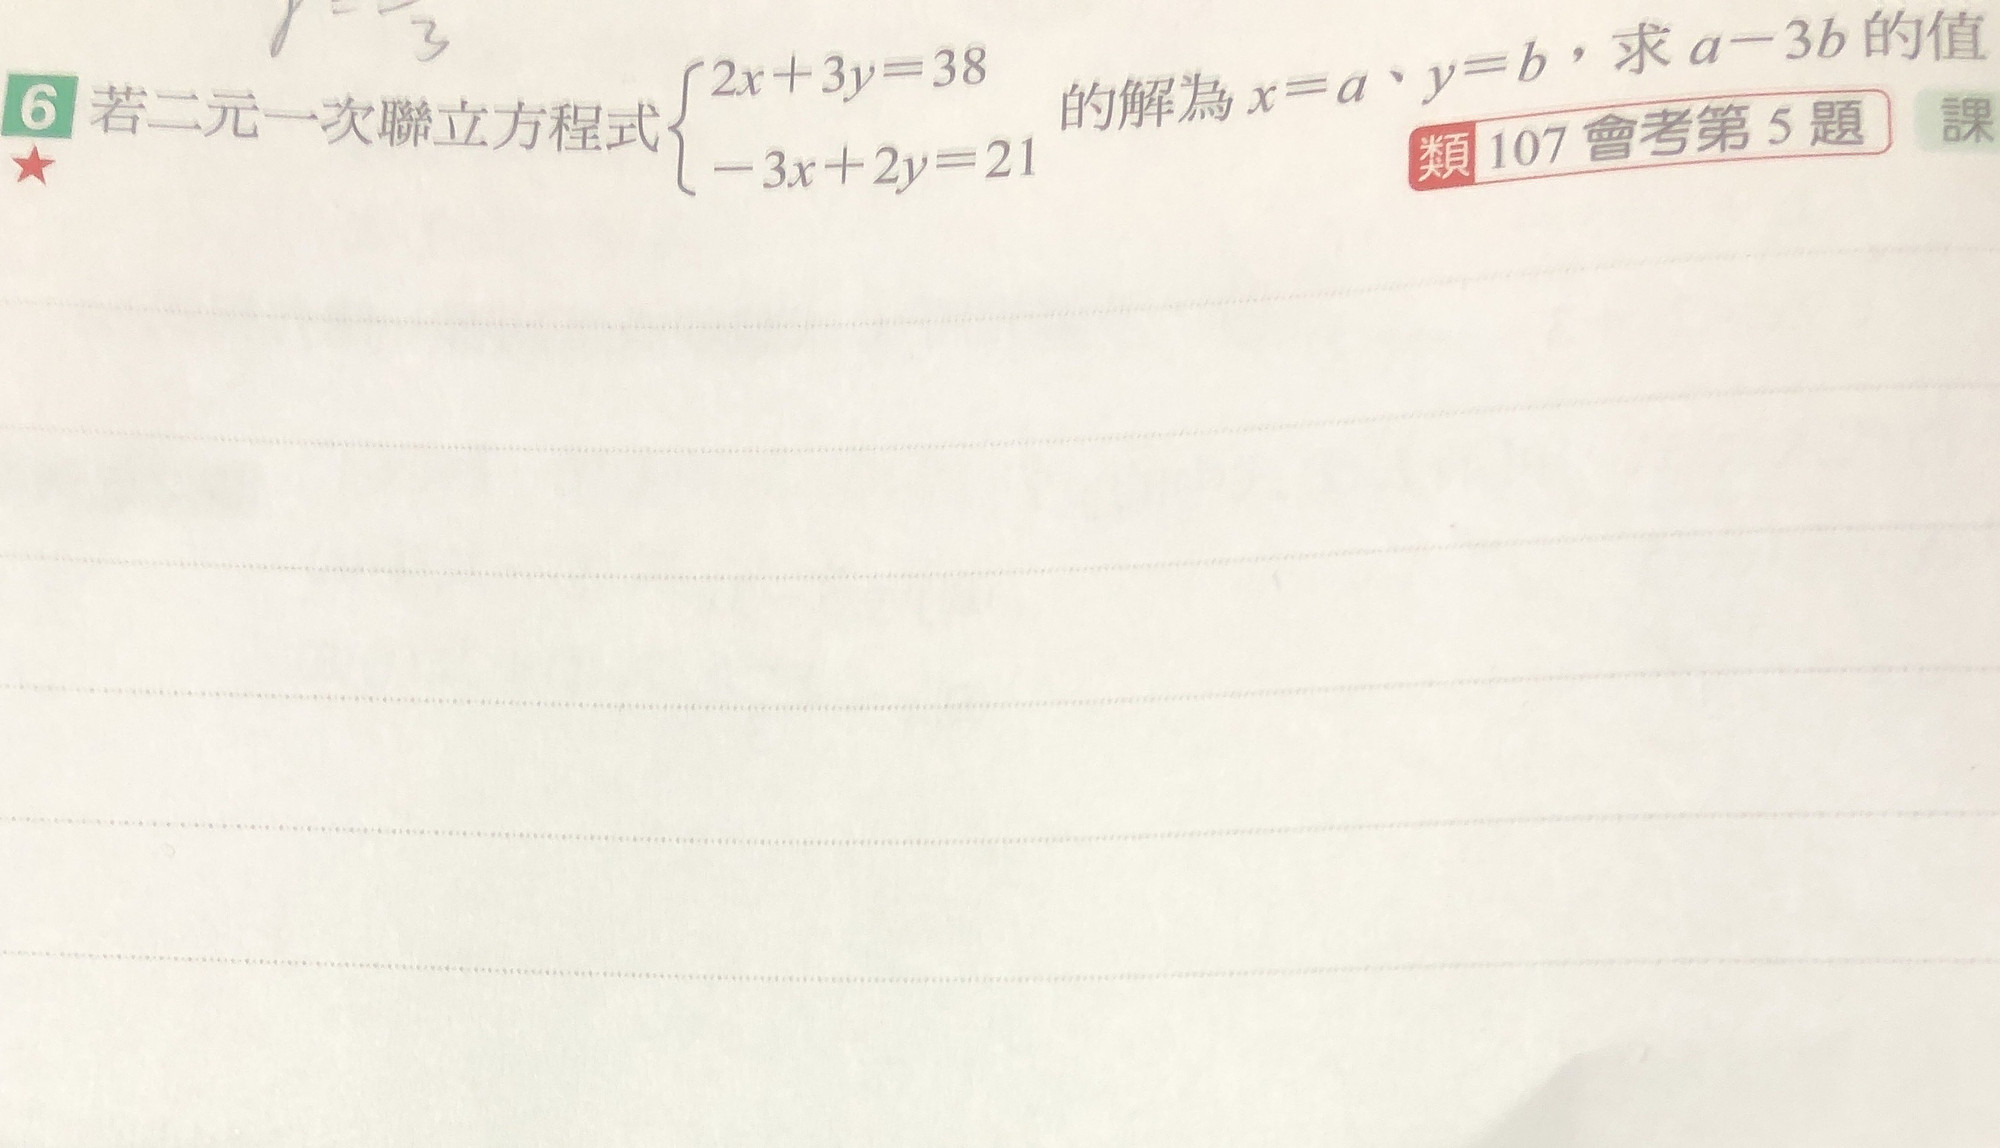 3
6 若二元一次聯立方程式{2x+3y=38 的解為 x=a、y=b,求 a-3b 的值
-3x+2y=21
★ 類 107 會考第 5 題 課